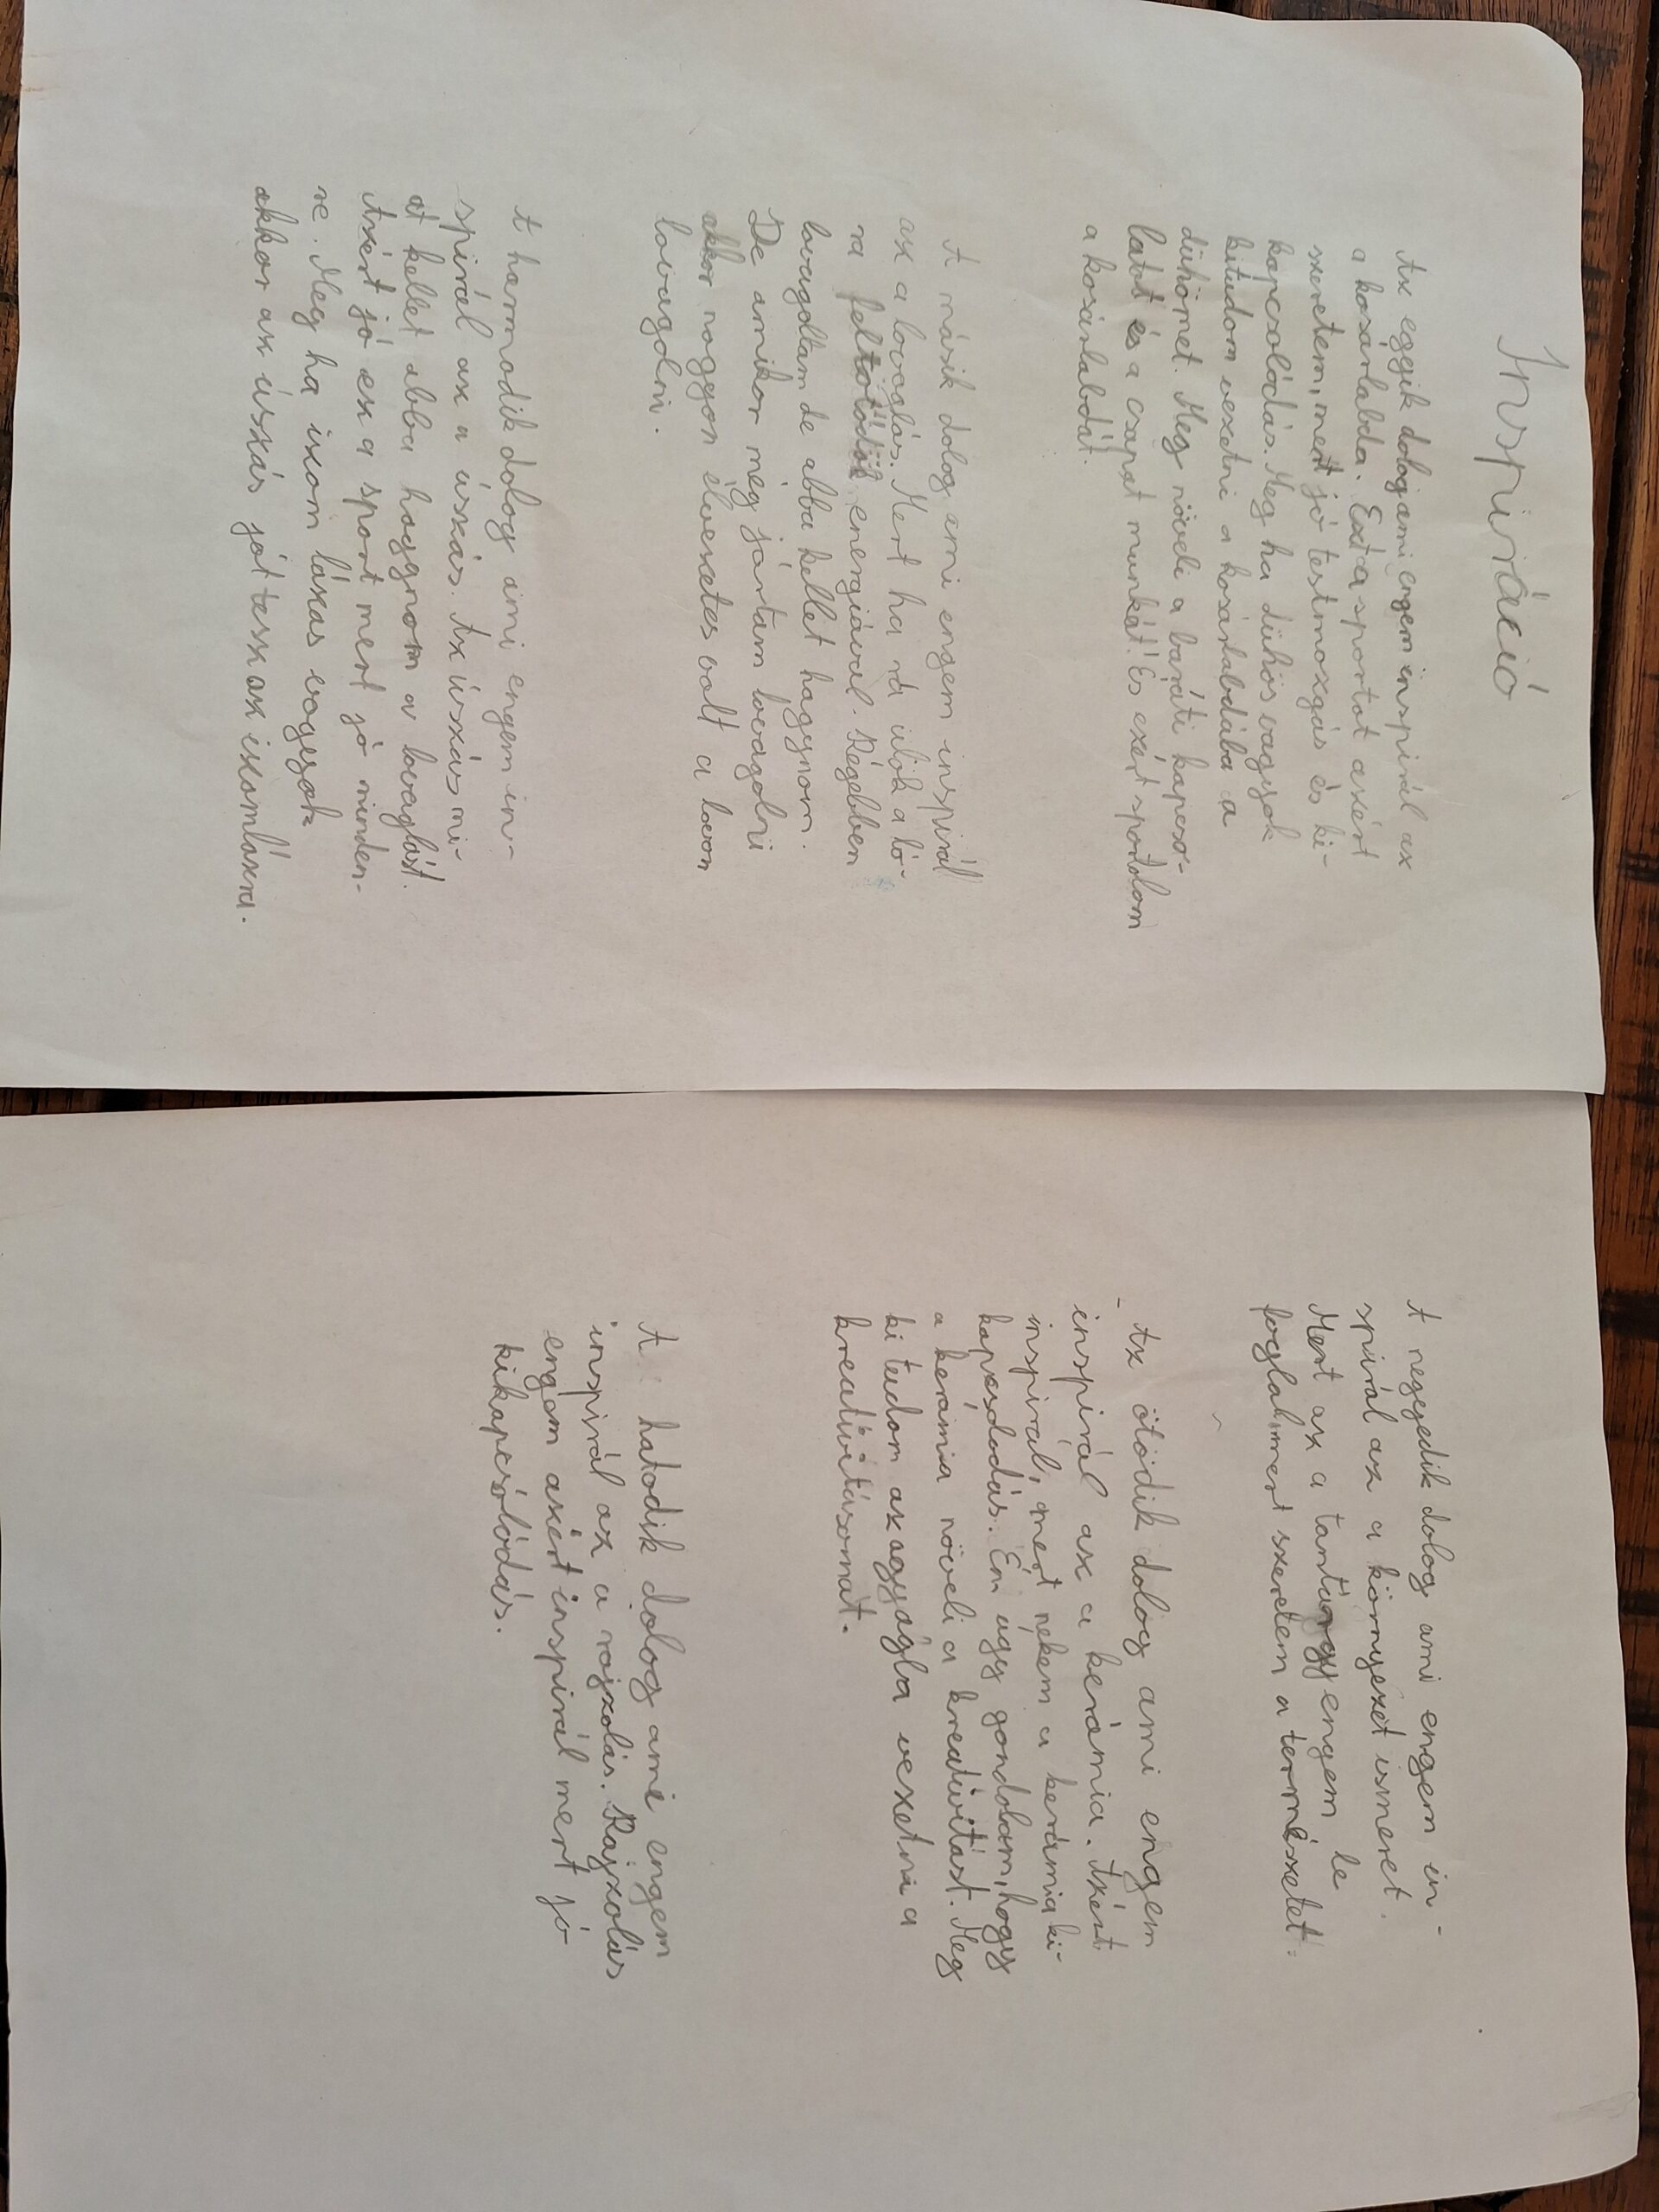 Inspiráció
Az eggik dolog ami engem inspirál az
a kosárlabda. Ezt a sportot azért
szeretem, mert jó testmozgás és ki-
kapcsolódás. Meg ha dühös vagyok
kitudom vezetni a kosárlabdába a
dühömet. Meg növeli a baráti kapcso-
latot és a csapat munkát! És ezért sportolom
a kosárlabdát.
A másik dolog ami engem inspirál
az a lovaglás. Mert ha rá ülök a ló-
ra feltőtődök energiával. Régebben
lovagoltam de abba kellet hagynom.
De amikor még jártam lovagolni
akkor nagyon élvezetes volt a lovon
lovagolni.
A harmadik dolog ami engem in-
spirál az a úszás. Az úszás mi-
at kellet abba hagynom a lovaglást.
Azért jó ez a sport mert jó minden-
re. Meg ha izom lázas vagyok
akkor az úszás jót tesz az izomlázra.
A negyedik dolog ami engem in-
spirál az a környezet ismeret.
Mert az a tantárgy engem le
foglal mert szeretem a természetet.
- Az ötödik dolog ami engem
inspirál az a kerámia. Azért
inspirál, mert nekem a kerámia ki-
kapcsdodás. Én úgy gondolom, hogy
a kerámia növeli a kreatívitást. Meg
ki tudom az agyagba vezetni a
kreatívitásomat.
A hatodik dolog ami engem
inspirál az a rajzolás. Rajzolás
engem azért inspirál mert jó
kikapcsólódás.